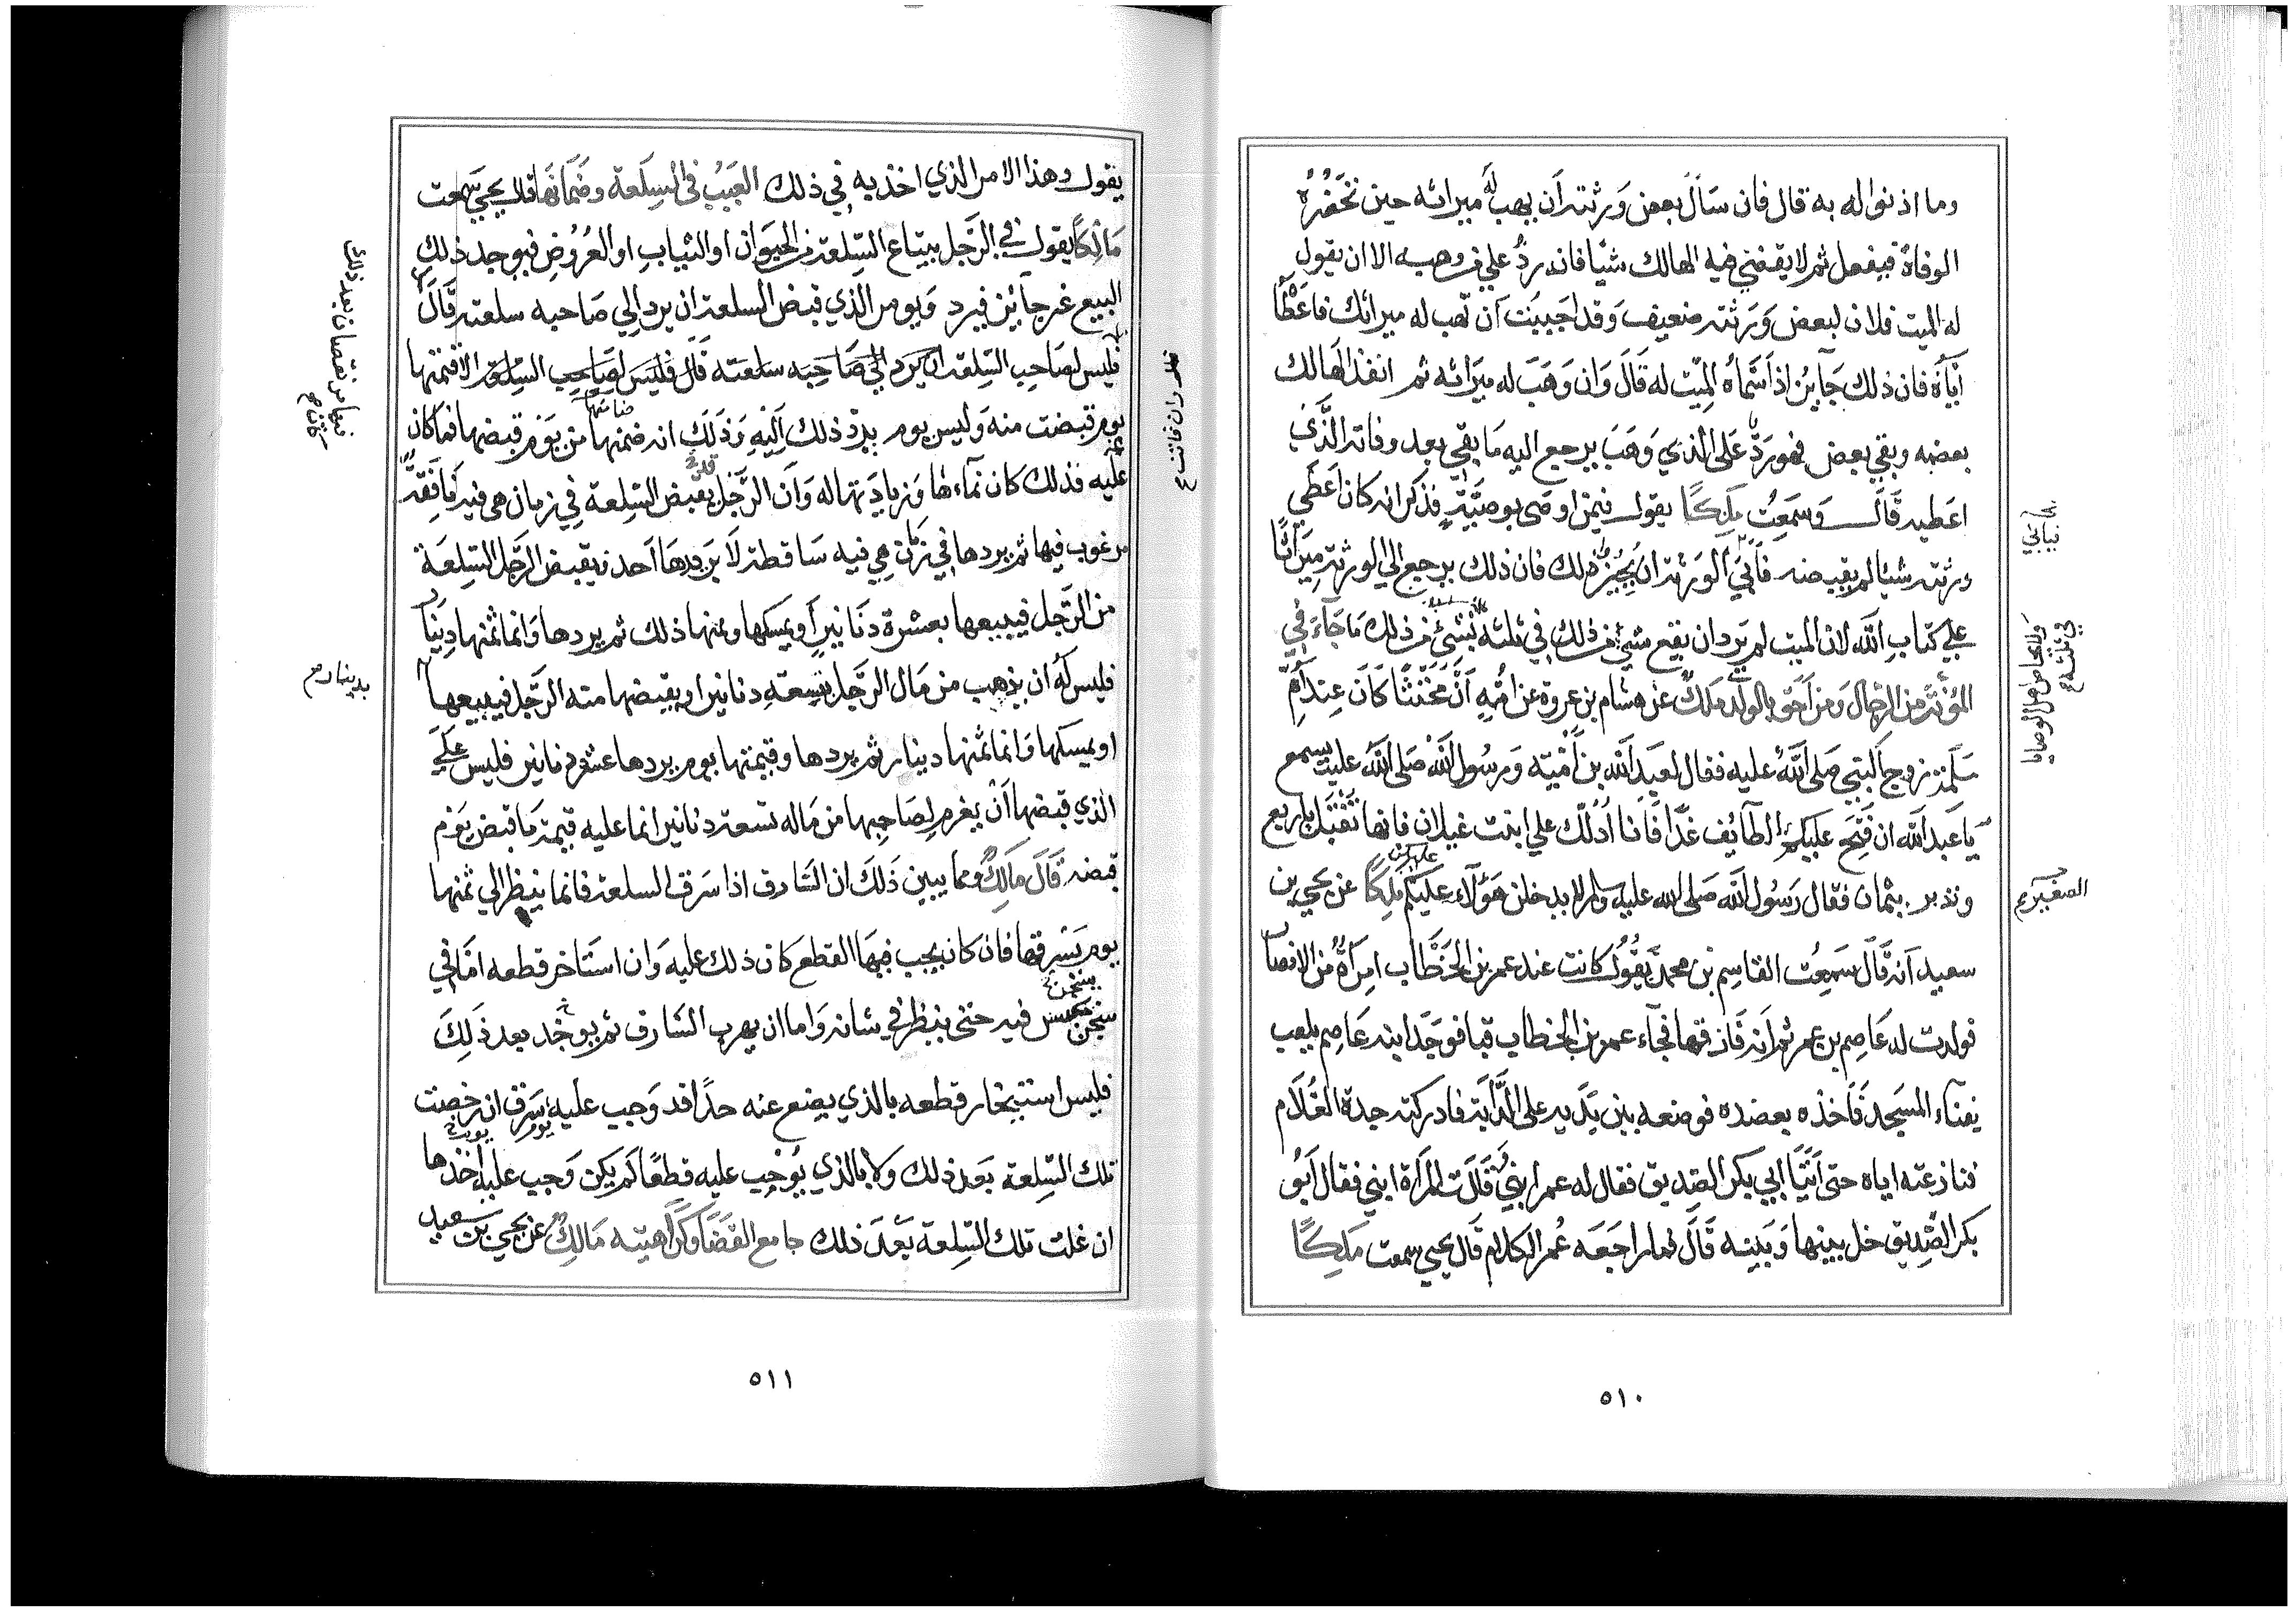 وما اذنوا له به قال فان سَاَلَ بعض وَرثته اَن يهب لَه ميراثه حين تَحضُرُهُ
الوفاة فيفعل ثم لا يقضي فيه الهالك شيًا فانه ردٌّ علي من وهبه الا ان يقول
له الميت فلان لبعض وَرَثته ضعيف وَقد احَبَبت اَن تهب له ميراثك فاعطا
اياهُ فان ذلك جَايزٌ اذا سَمَّاهُ الميّت له قَالَ وَان وَهَبَ له ميَراثه ثم انفذ الهَالك
بعضه وبقي بعض فهو رَدٌّ عَلى الذي وَهَبَ يرجع اليه مَا بقي بعد وفاته الَّذي
اعَطيه قَالَ وَسَمَعِت مَلِكًا يقول فيمن اوصى بوصَيَّة فذكر انه كان اَعَطَي
ورثته شيا لم يقبضه فاَبَي الوَرثة ان يُجيزُ ذلك فان ذلك يرجع الي الورثة مِيَراثًا
علي كتابِ اللّه لان الميت لم يَرد ان يقع شيٌ من ذلك في ثلثه بِشيءٍ من ذلك مَا جَاءَ في
المُؤنّث من الرجال وَمن اَحَقّ بالولد مَلكٌ عن هشام بن عروة عن ابيهِ اَنَّ مُخَنّثًا كَانَ عِند اُمِّ
سَلَمَة زوج النَّبي صَلى اللّهُ عليه فقال لعبدِ اللّه بن اُميّه وَرسُول اللّه صَلى اللّهُ عليه يسمع
يا عَبد اللّه ان فَتِحَ عليكم الطايف غَدًا فَاَنا اَدُلّك علي ابنت غيلان فانها تُقبلُ باربع
وتدبر بثمان فقال رَسُول اللّه صَلى الله عليه وسلم لا يدخلن هَؤلآءِ عَليكم مَلِكًا عن يحيي بن
سعيد اَنه قَالَ سَمِعت القاسِم بن محمد يَقُول كانت عند عمر بن الخَطَّاب امرَاَةٌ من الانصا
فولدت له عَاصِم بن عمر ثم اَنه فَارقها فجَاءَ عمر بن الخطاب قبا فوجَدَ ابنه عَاصِم يلعب
بفناءِ المسَجد فَاَخَذه بعضده فوضعه بين يَدَيه علي الدَّابّة فادركته جدة الغُلاَم
فنازعته اياه حتى اَتيَا ابي بكر الصديق فقال له عمر ابني وَقَالَت المرَاة ابني فقال اَبُو
بكر الصِّديق خل بينها وَبَينه قَالَ فما راجَعَه عُمر الكلام قَال يحيي سمعت مَلِكًا
بَيانِي
وَلا يحاص اهل الوصايا
في ثلثه ع
الصغير
٥١٠
يقول وهذا الامر الذي اخذ به في ذلك العَيبُ في السِلَعة وضَمَانها قال يحيي سَمِعت
مَالِكًا يقول في الرَّجل يبتاع السّلعة من الحيَوان او الثيابِ او العُرُوضِ فيوجد ذلك
البيع غير جايز فيرد وَيومر الذي قبض السلعة ان يرد الي صَاحبه سلعته قَالَ
فليس لصَاحِب السّلعة ان يَرد الي صَاحِبه سلعَته قَالَ فليس لصَاحِب السّلعَة الا قيمتها
يوم قبضت منه وَليس يوم يرَدّ ذلك اليِه وَذَلَك انه ضمنها من يوَم قبضها فما كان
عليه فذلك كان نمآءها وَزيادَتها له وَان الرَّجُل يقبض السّلعة في زمان هي فيه نَافِقَة
مرغوب فيها ثم يردها في زمان هي فيه سَاقطة لاَ يَريدهَا اَحد فيقبض الرَّجل السّلعَة
من الرَّجل فيبيعها بعشرة دنَانير اَو يمسكها وثمنها ذلك ثم يردها وَانما ثمنها ديَنا
فليس لَهُ ان يذهب من مَال الرَّجل بتسعَةِ دنانيرَ او يقبضها منه الرَّجل فيبيعها
او يمسكها وَانما ثمنها دينار ثم يردها وقيمتها يوم يردها عشرة دنانير فليس عَلَي
الذي قبضها اَنْ يغرم لصَاحِبها من مَاله تسعة دنانير انما عليه قيمة مَا قبض يَوم
قبضه قَالَ مَالِكٌ ومما يبين ذَلَكَ ان السَّارق اذا سَرق السلعة فانما ينظر الي ثمنها
يوم يَسْرقها فان كان يجب فيهَا القطع كان ذلك عليه وَان استَاخر قطعه امَّا في
سَجن يحبس فيه حتى ينظر في شانه وَاما ان يهرب السَّارق ثم يوخَد بعد ذلِكَ
فليس استيخار قطعه بالذي يضع عنه حدًا قد وَجب عليهِ يوم سَرق ان رخصت
تلك السّلعة بَعَد ذلك ولا بالذي يُوجِب عليهِ قطعًا لم يكن وَجب عليه يوم اخذها
ان غلت تلك السّلعة بَعَد ذلك جامع القضَا وكَراهيته مَالِكٌ عن يحيي بن سَعيد
فيها من نقصان بعد ذلك
بدينار م
٥١١